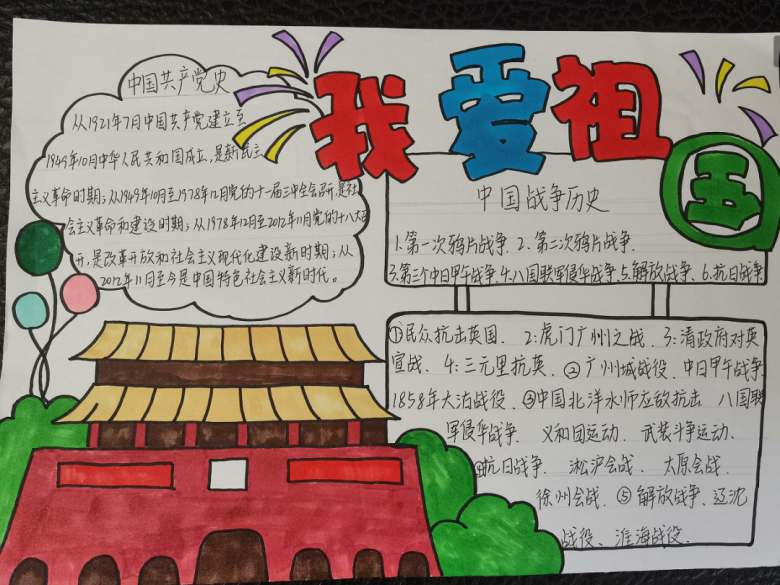 我爱祖国
中国共产党史
从1921年7月中国共产党建立至
1949年10月中华人民共和国成立,是新民主
主义革命时期;从1949年10月至1978年12月党的十一届三中全会召开,是社
会主义革命和建设时期;从1978年12月至2012年11月党的十八大召
开,是改革开放和社会主义现代化建设新时期;从
2012年11月至今是中国特色社会主义新时代。
中国战争历史
1.第一次鸦片战争 2.第二次鸦片战争.
3.第三个中日甲午战争.4.八国联军侵华战争.5.解放战争、6.抗日战争
①民众抗击英国. 2:虎门广州之战.3:清政府对英
宣战. 4:三元里抗英. ②广州城战役. 中日甲午战争
1858年大沽战役.③中国北洋水师应敌抗击 八国联
军侵华战争. 义和团运动. 武装斗争运动.
④抗日战争. 淞沪会战. 太原会战.
徐州会战.⑤解放战争、辽沈
战役、淮海战役.